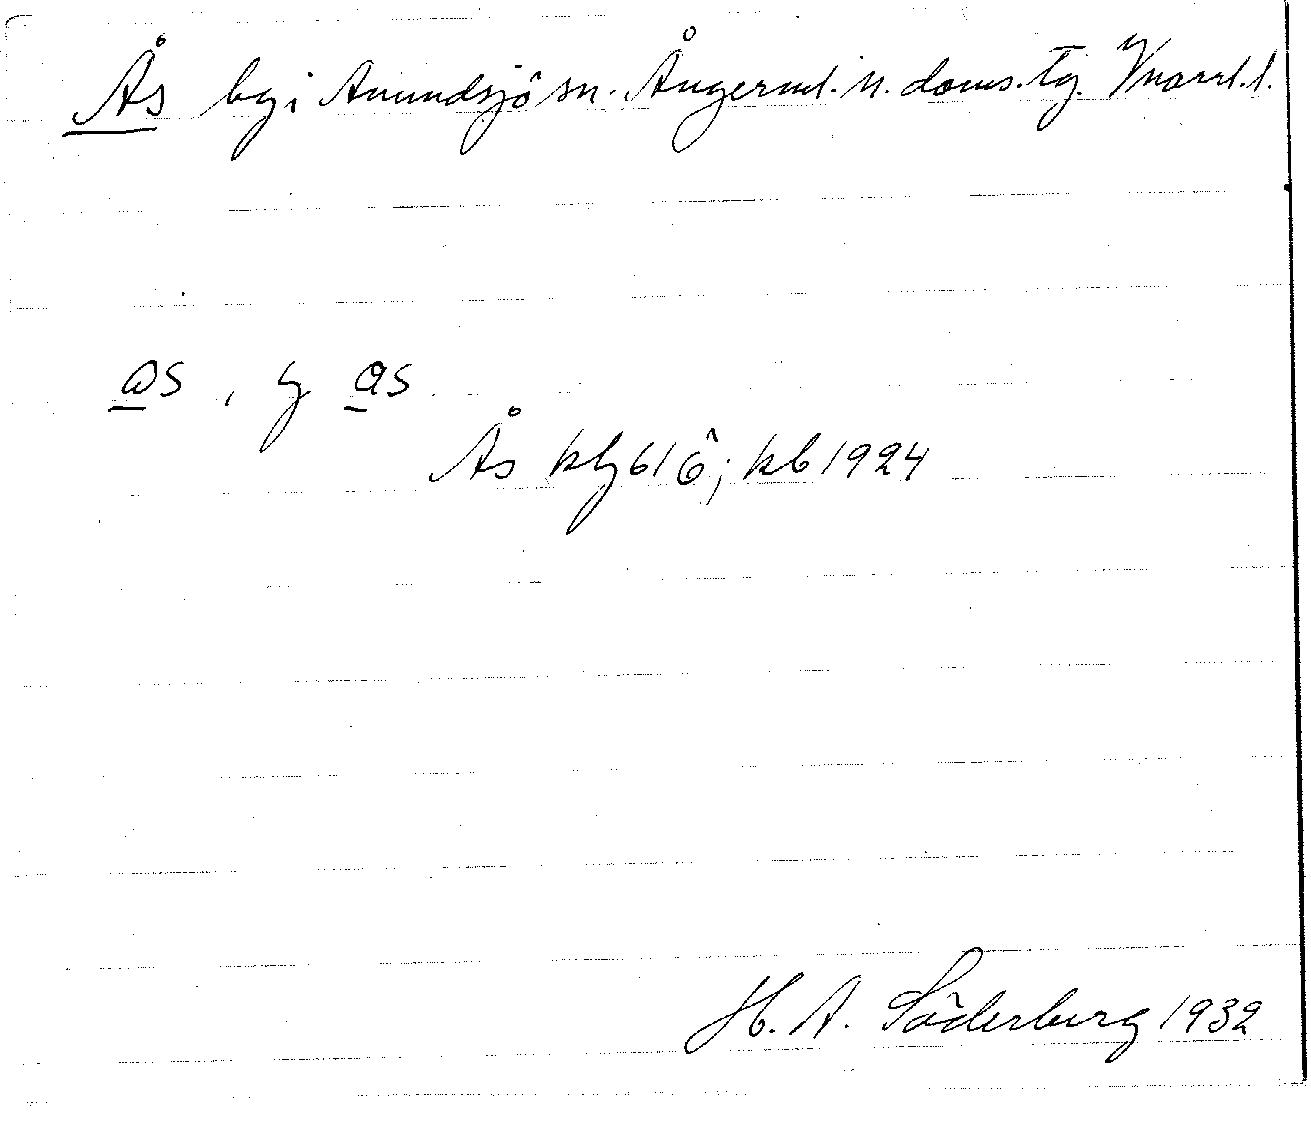 Ås by i Anundsjö sn. Ångerml. n. doms. tg. Vnorrl. l.
as, y as
Ås kbg 61 ö; kb 1924
H. A. Söderberg 1932